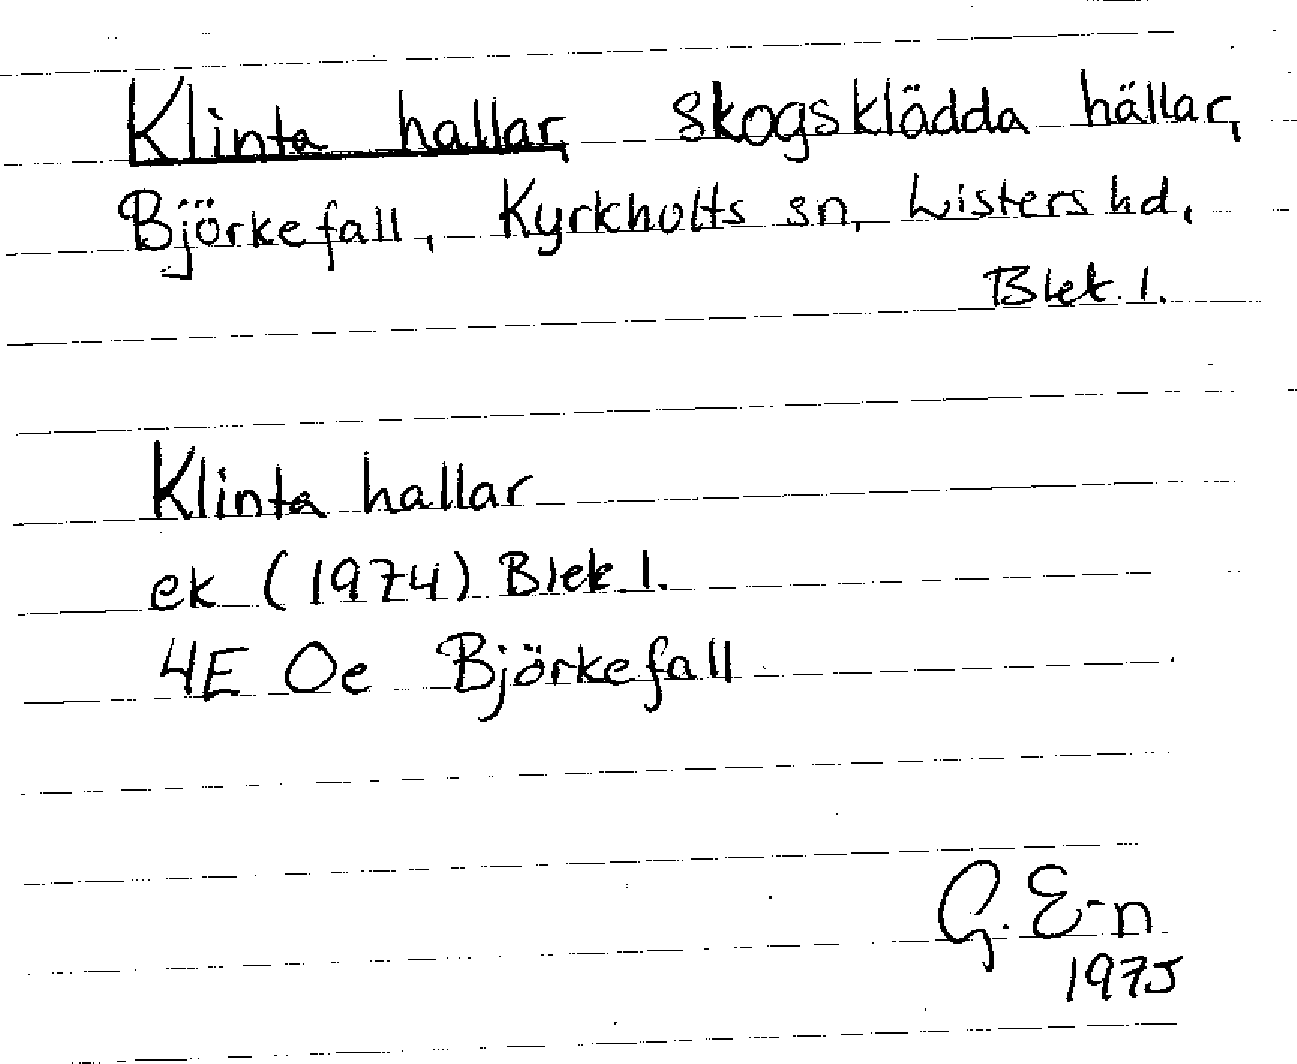 Klinta hallar, skogsklädda hällar,
Björkefall, Kyrkhults sn, Listers hd,
Blek. l.
Klinta hallar
ek (1974) Blek l.
4E Oe Björkefall
G. E-n
1975